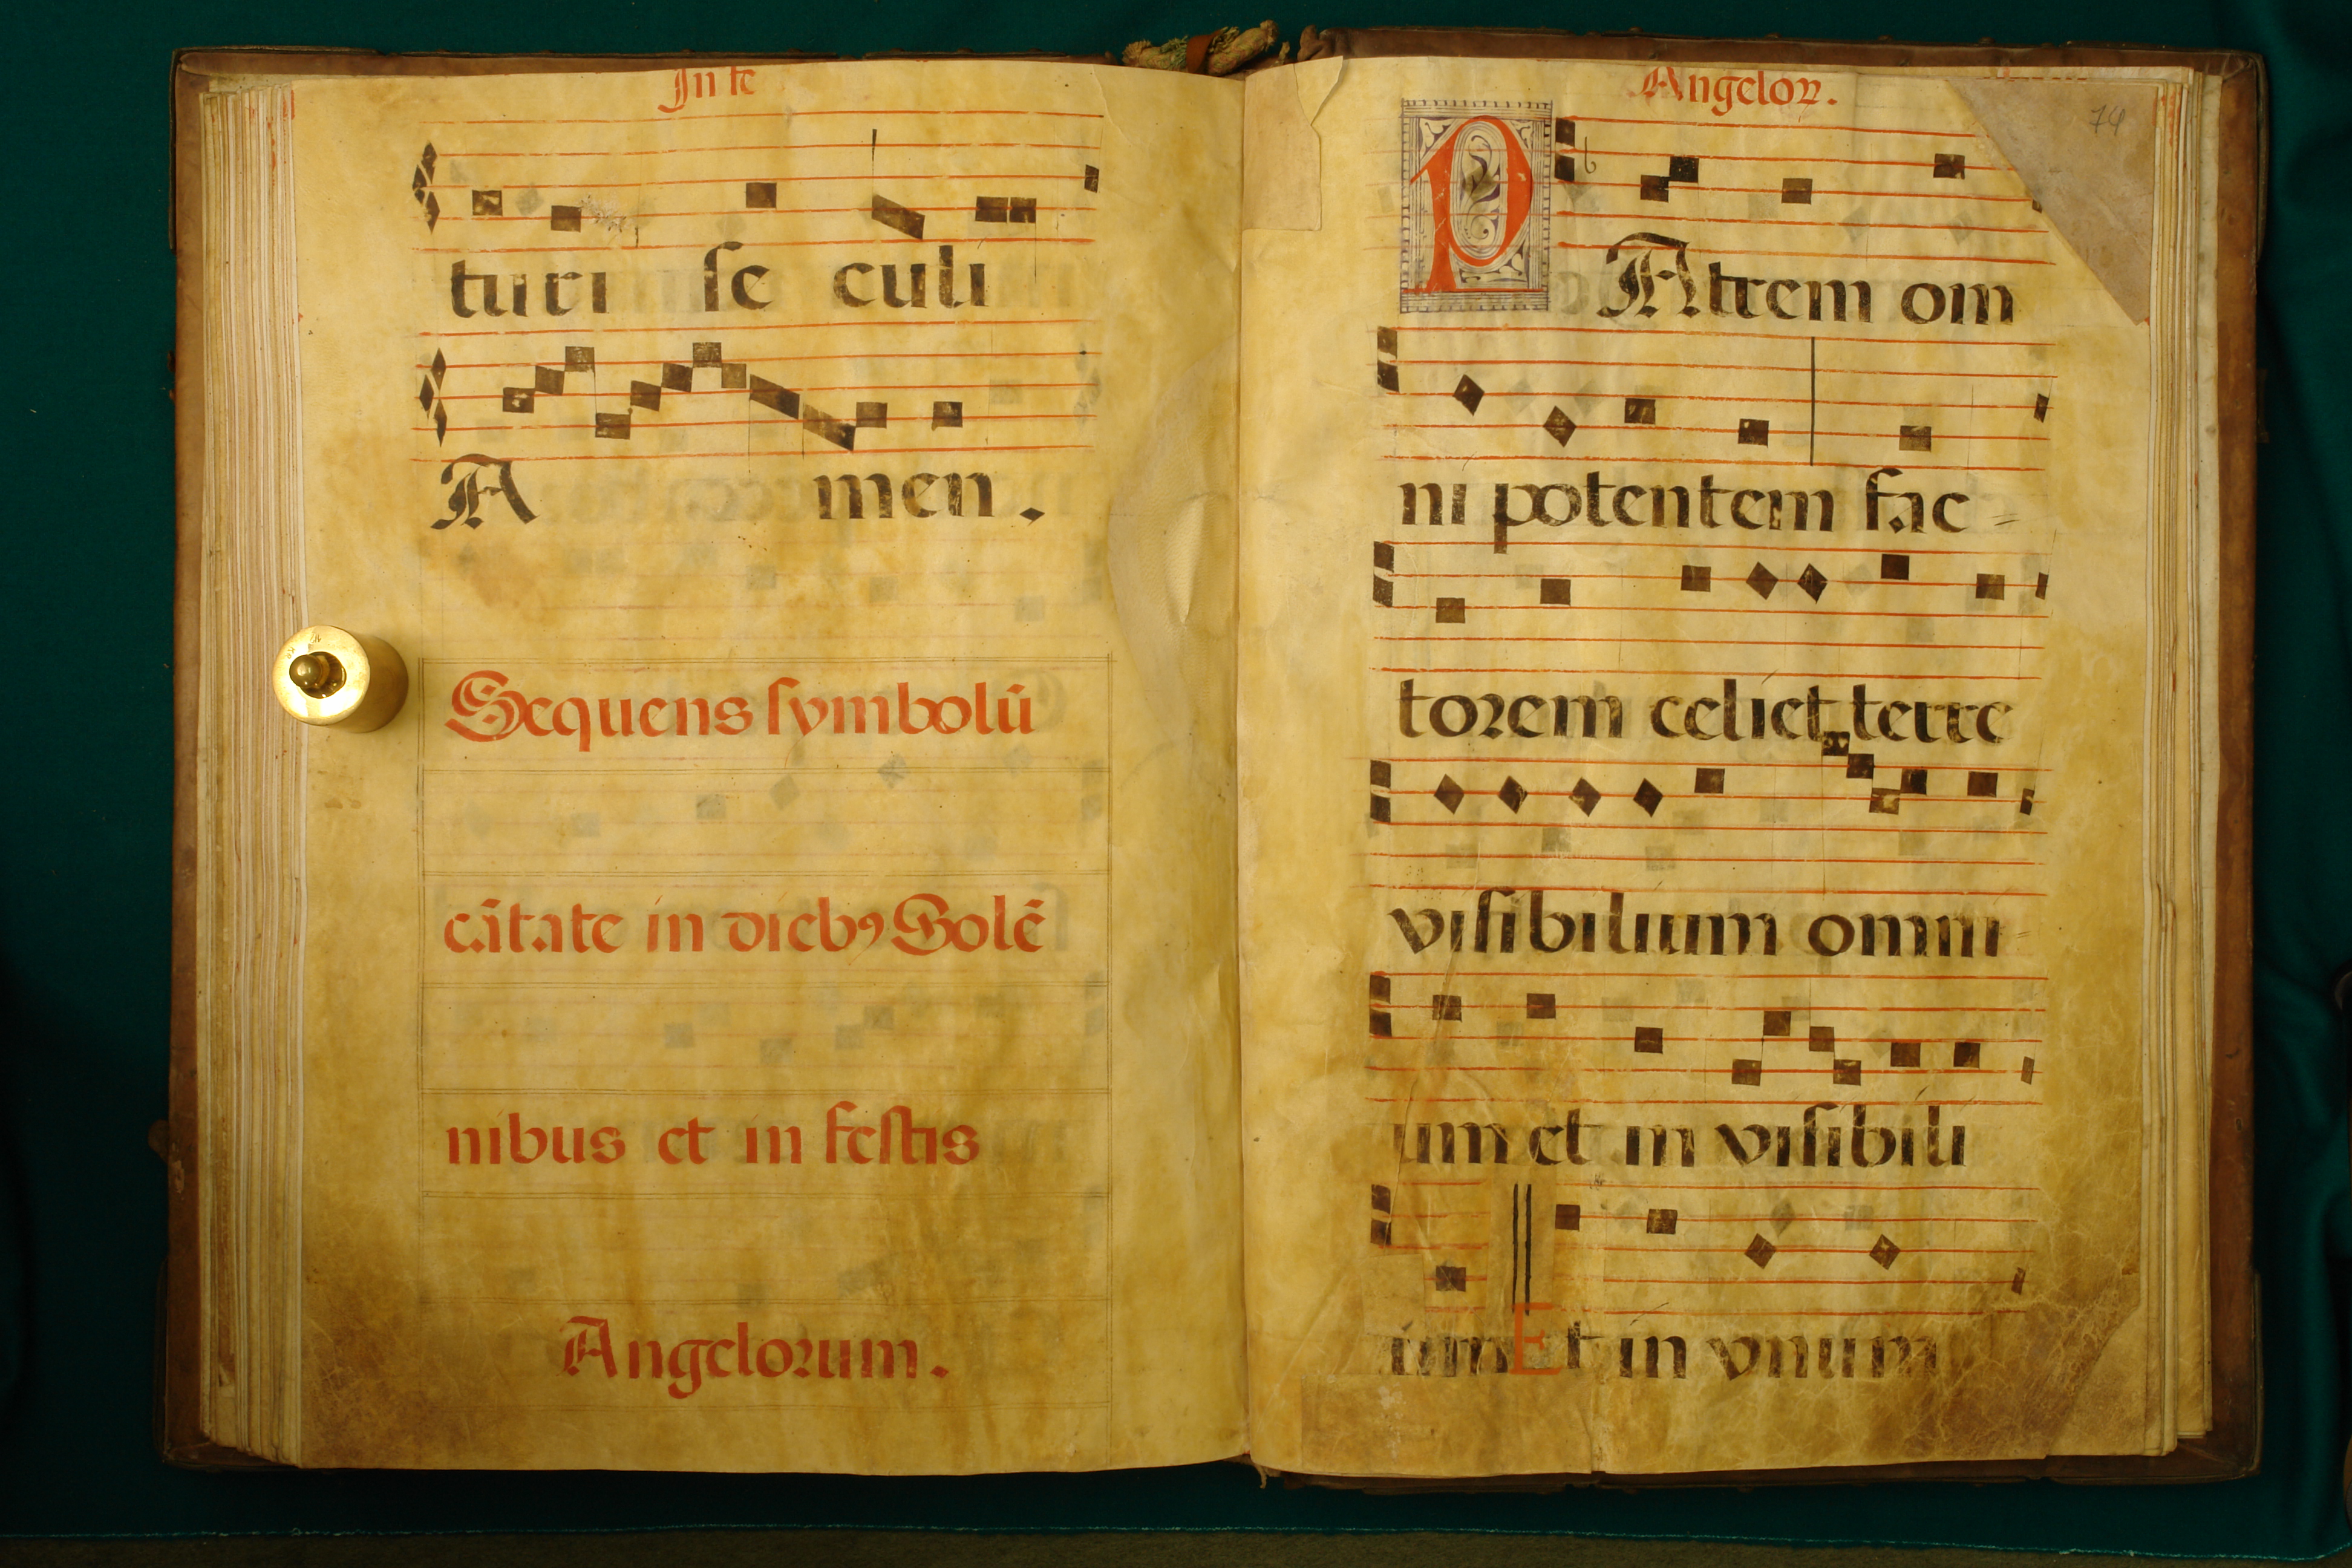 In te
turi se culi
Amen.
Sequens symbolū
cātate in dieb9 Solē
nibus et in festis
Angelorum.
Angeloꝝ.
74
PAtrem om
ni potentem fac=
torem celi et terre
visibilium omni=
um et in visibili
um Et in vnum